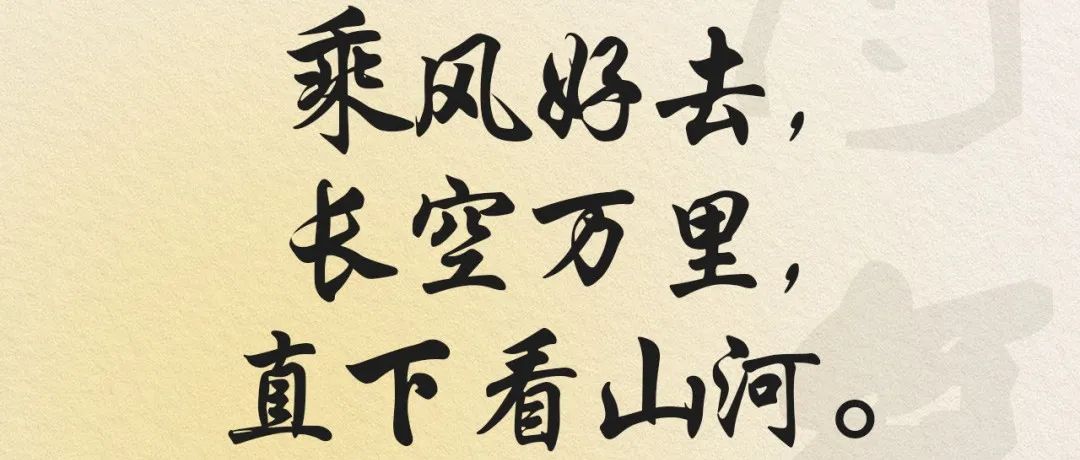 乘风好去，
长空万里，
直下看山河。